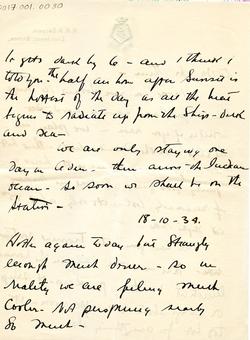 0017.001.0030
It gets dark by 6 - and I think I
told you the half an hour after Sunset is
the hottest of the day as all the heat
begins to radiate up from the Ship - deck
and sea -
we are only staying one
Day in Aden - then across the Indian
ocean - So soon we shall be on the
Station -
18-10-34.
Hotter again today but Strangely
enough much drier - so in
reality we are feeling much
Cooler - Not perspiring nearly
so much -